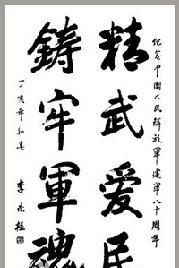 纪念中国人民解放军建军八十周年
精武爱民
鑄牢軍魂
丁亥年和春